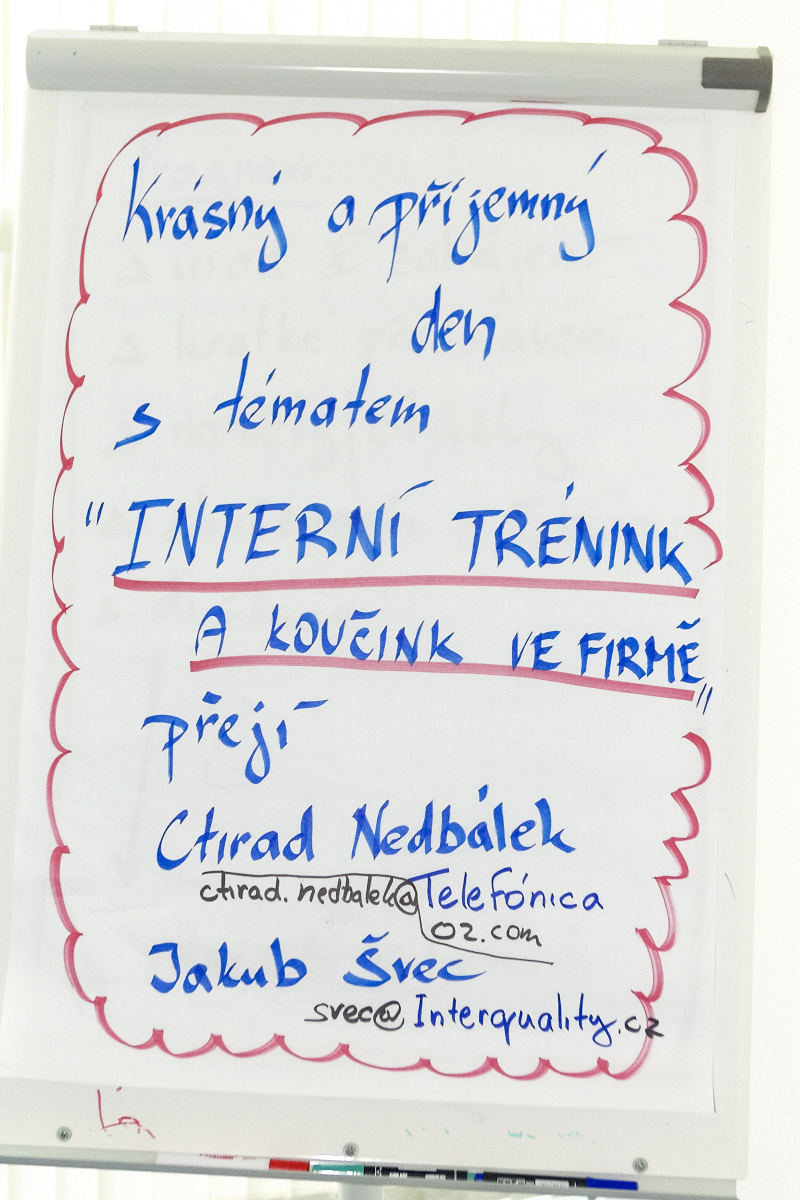 Krásný a příjemný
den
s tématem
"INTERNÍ TRÉNINK
A KOUČINK VE FIRMĚ"
přejí
Ctirad Nedbálek
ctirad.nedbalek@Telefónica
O2.com
Jakub Švec
svec@Interquality.cz